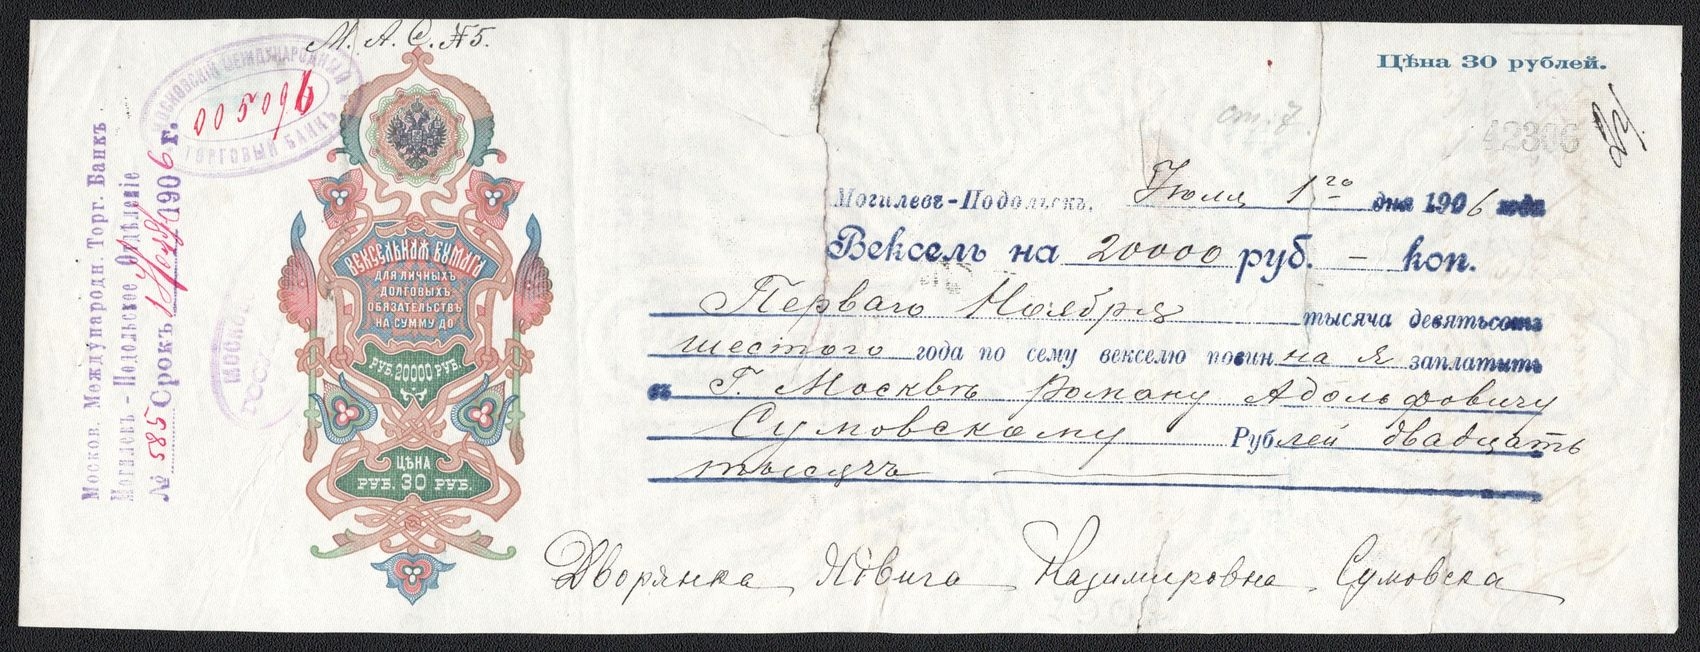 М. А. С. №5.
МОСКОВСКІЙ МЕЖДУНАРОДНЫЙ
ТОРГОВЫЙ БАНКЪ
Москов. Международн. Торг. Банкъ
Могилевъ-Подольское Отдѣленіе
№ 585 Срокъ 1 Ноября 1906 г.
ВЕКСЕЛЬНАЯ БУМАГА
ДЛЯ ЛИЧНЫХЪ
ДОЛГОВЫХЪ
ОБЯЗАТЕЛЬСТВЪ
НА СУММУ ДО
РУБ. 20000 РУБ.
ЦѢНА
РУБ. 30 РУБ.
Цѣна 30 рублей.
42306
Могилевъ-Подольскъ, Іюля 1го дня 1906 года
Вексель на 20000 руб. - коп.
Перваго Ноября тысяча девятьсотъ
шестого года по сему векселю повинна я заплатить
въ Г. Москвѣ Роману Адольфовичу
Сумовскому Рублей двадцать
тысячъ
Дворянка Казимировна Сумовска